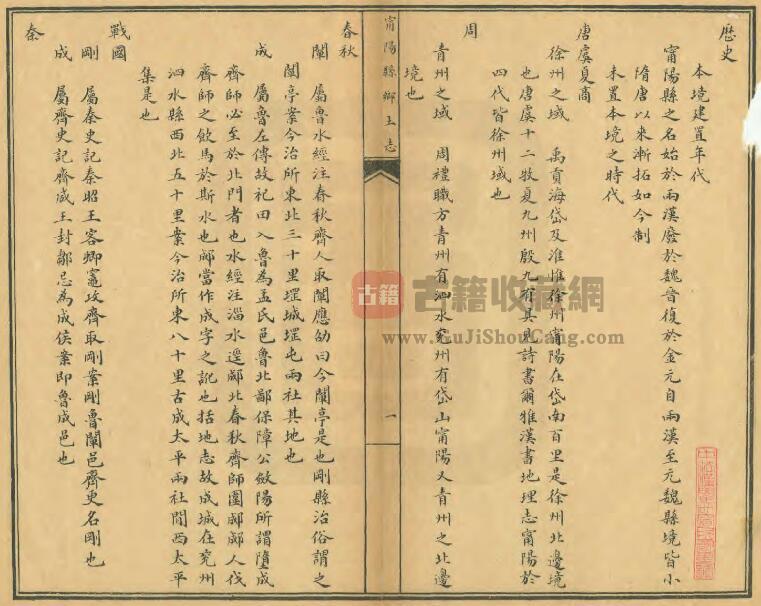 歷史
本境建置年代
甯陽縣之名始於兩漢廢於魏晉復於金元自兩漢至元魏縣境皆小
隋唐以來漸拓如今制
未置本境之時代
唐虞夏商
徐州之域 禹貢海岱及淮惟徐州甯陽在岱南百里是徐州北邊境
也唐虞十二牧夏九州殷九有其見詩書爾雅漢書地理志甯陽於
四代皆徐州域也
周
青州之域 周禮職方青州有泗水兖州有岱山甯陽又青州之北邊
境也
甯陽縣鄉土志
一
春秋
闡 屬魯水經注春秋齊人取闡應劭曰今闡亭是也剛縣治俗謂之
闡亭案今治所東北三十里堽城堽屯兩社其地也
成 屬魯左傳故祀田入魯為孟氏邑魯北鄙保障公斂陽所謂墮成
齊師必至於北門者也水經注淄水逕郕北春秋齊師圍郕郕人伐
齊師之飲馬於斯水也郕當作成字之訛也括地志故成城在兖州
泗水縣西北五十里案今治所東八十里古成太平兩社間西太平
集是也
戰國
剛 屬秦史記秦昭王客卿竈攻齊取剛案剛魯闡邑齊更名剛也
成 屬齊史記齊威王封鄒忌為成侯案即魯成邑也
秦
古籍
古籍收藏網
www.GuJiShouCang.com